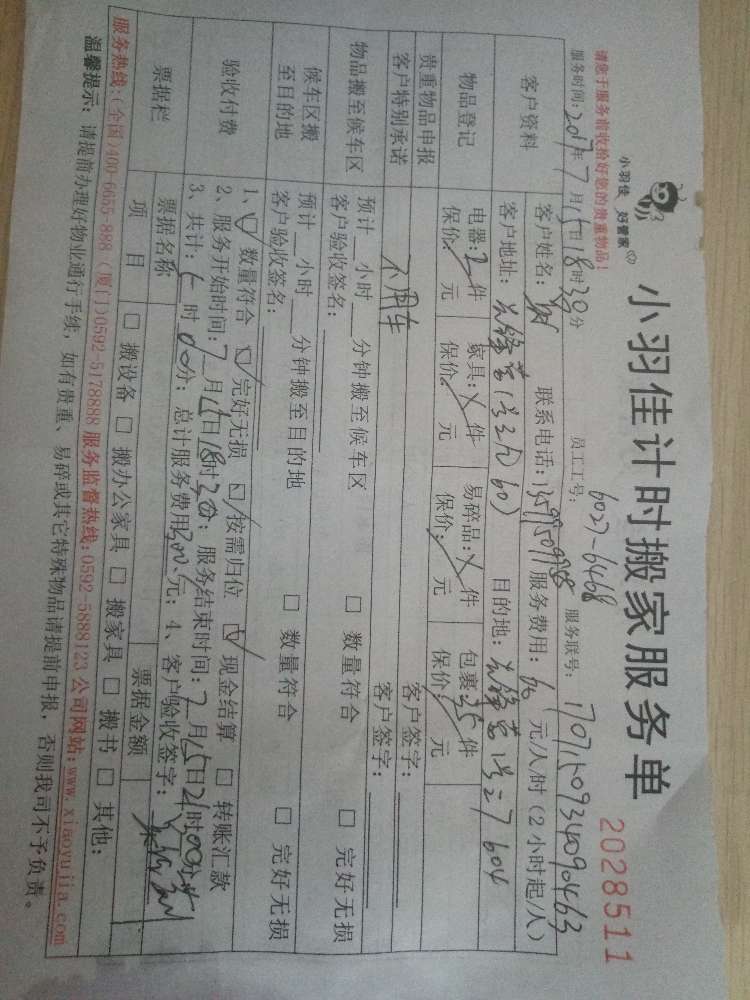 小羽佳 好管家
小羽佳计时搬家服务单
2028511
请您于服务前收拾好您的贵重物品！
员工工号：6027-6468
服务联号：1707150934090463
服务时间：2017年7月15日18时30分
客户资料
客户姓名：
联系电话：
服务费用：60元/人/时（2小时起/人）
客户地址：
目的地：
604
物品登记
电器：2件 家具：件 易碎品：件 包裹：35件
保价：元 保价：元 保价：元 保价：元
贵重物品申报
客户签字：
客户特别承诺
不用车
客户签字：
物品搬至候车区
预计__小时__分钟搬至候车区 □ 数量符合 □ 完好无损
客户验收签名：
候车区搬至目的地
预计__小时__分钟搬至目的地 □ 数量符合 □ 完好无损
客户验收签名：
验收付费
1、☑ 数量符合 ☑ 完好无损 ☑ 按需归位 ☑ 现金结算 □ 转账汇款
2、服务开始时间：7月15日18时30分；服务结束时间：7月15日21时00分
3、共计：时00分；总计服务费用300元；4、客户验收签字：
票据栏
票据名称
票据金额
项 目 □ 搬设备 □ 搬办公家具 □ 搬家具 □ 搬书 □ 其他：
服务热线：(全国)400-6655-888 (厦门)0592-5178888 服务监督热线：0592-5888123 公司网站：www.xiaoyujia.com
温馨提示：请提前办理好物业通行手续，如有贵重、易碎或其它特殊物品请提前申报，否则我司不予负责。